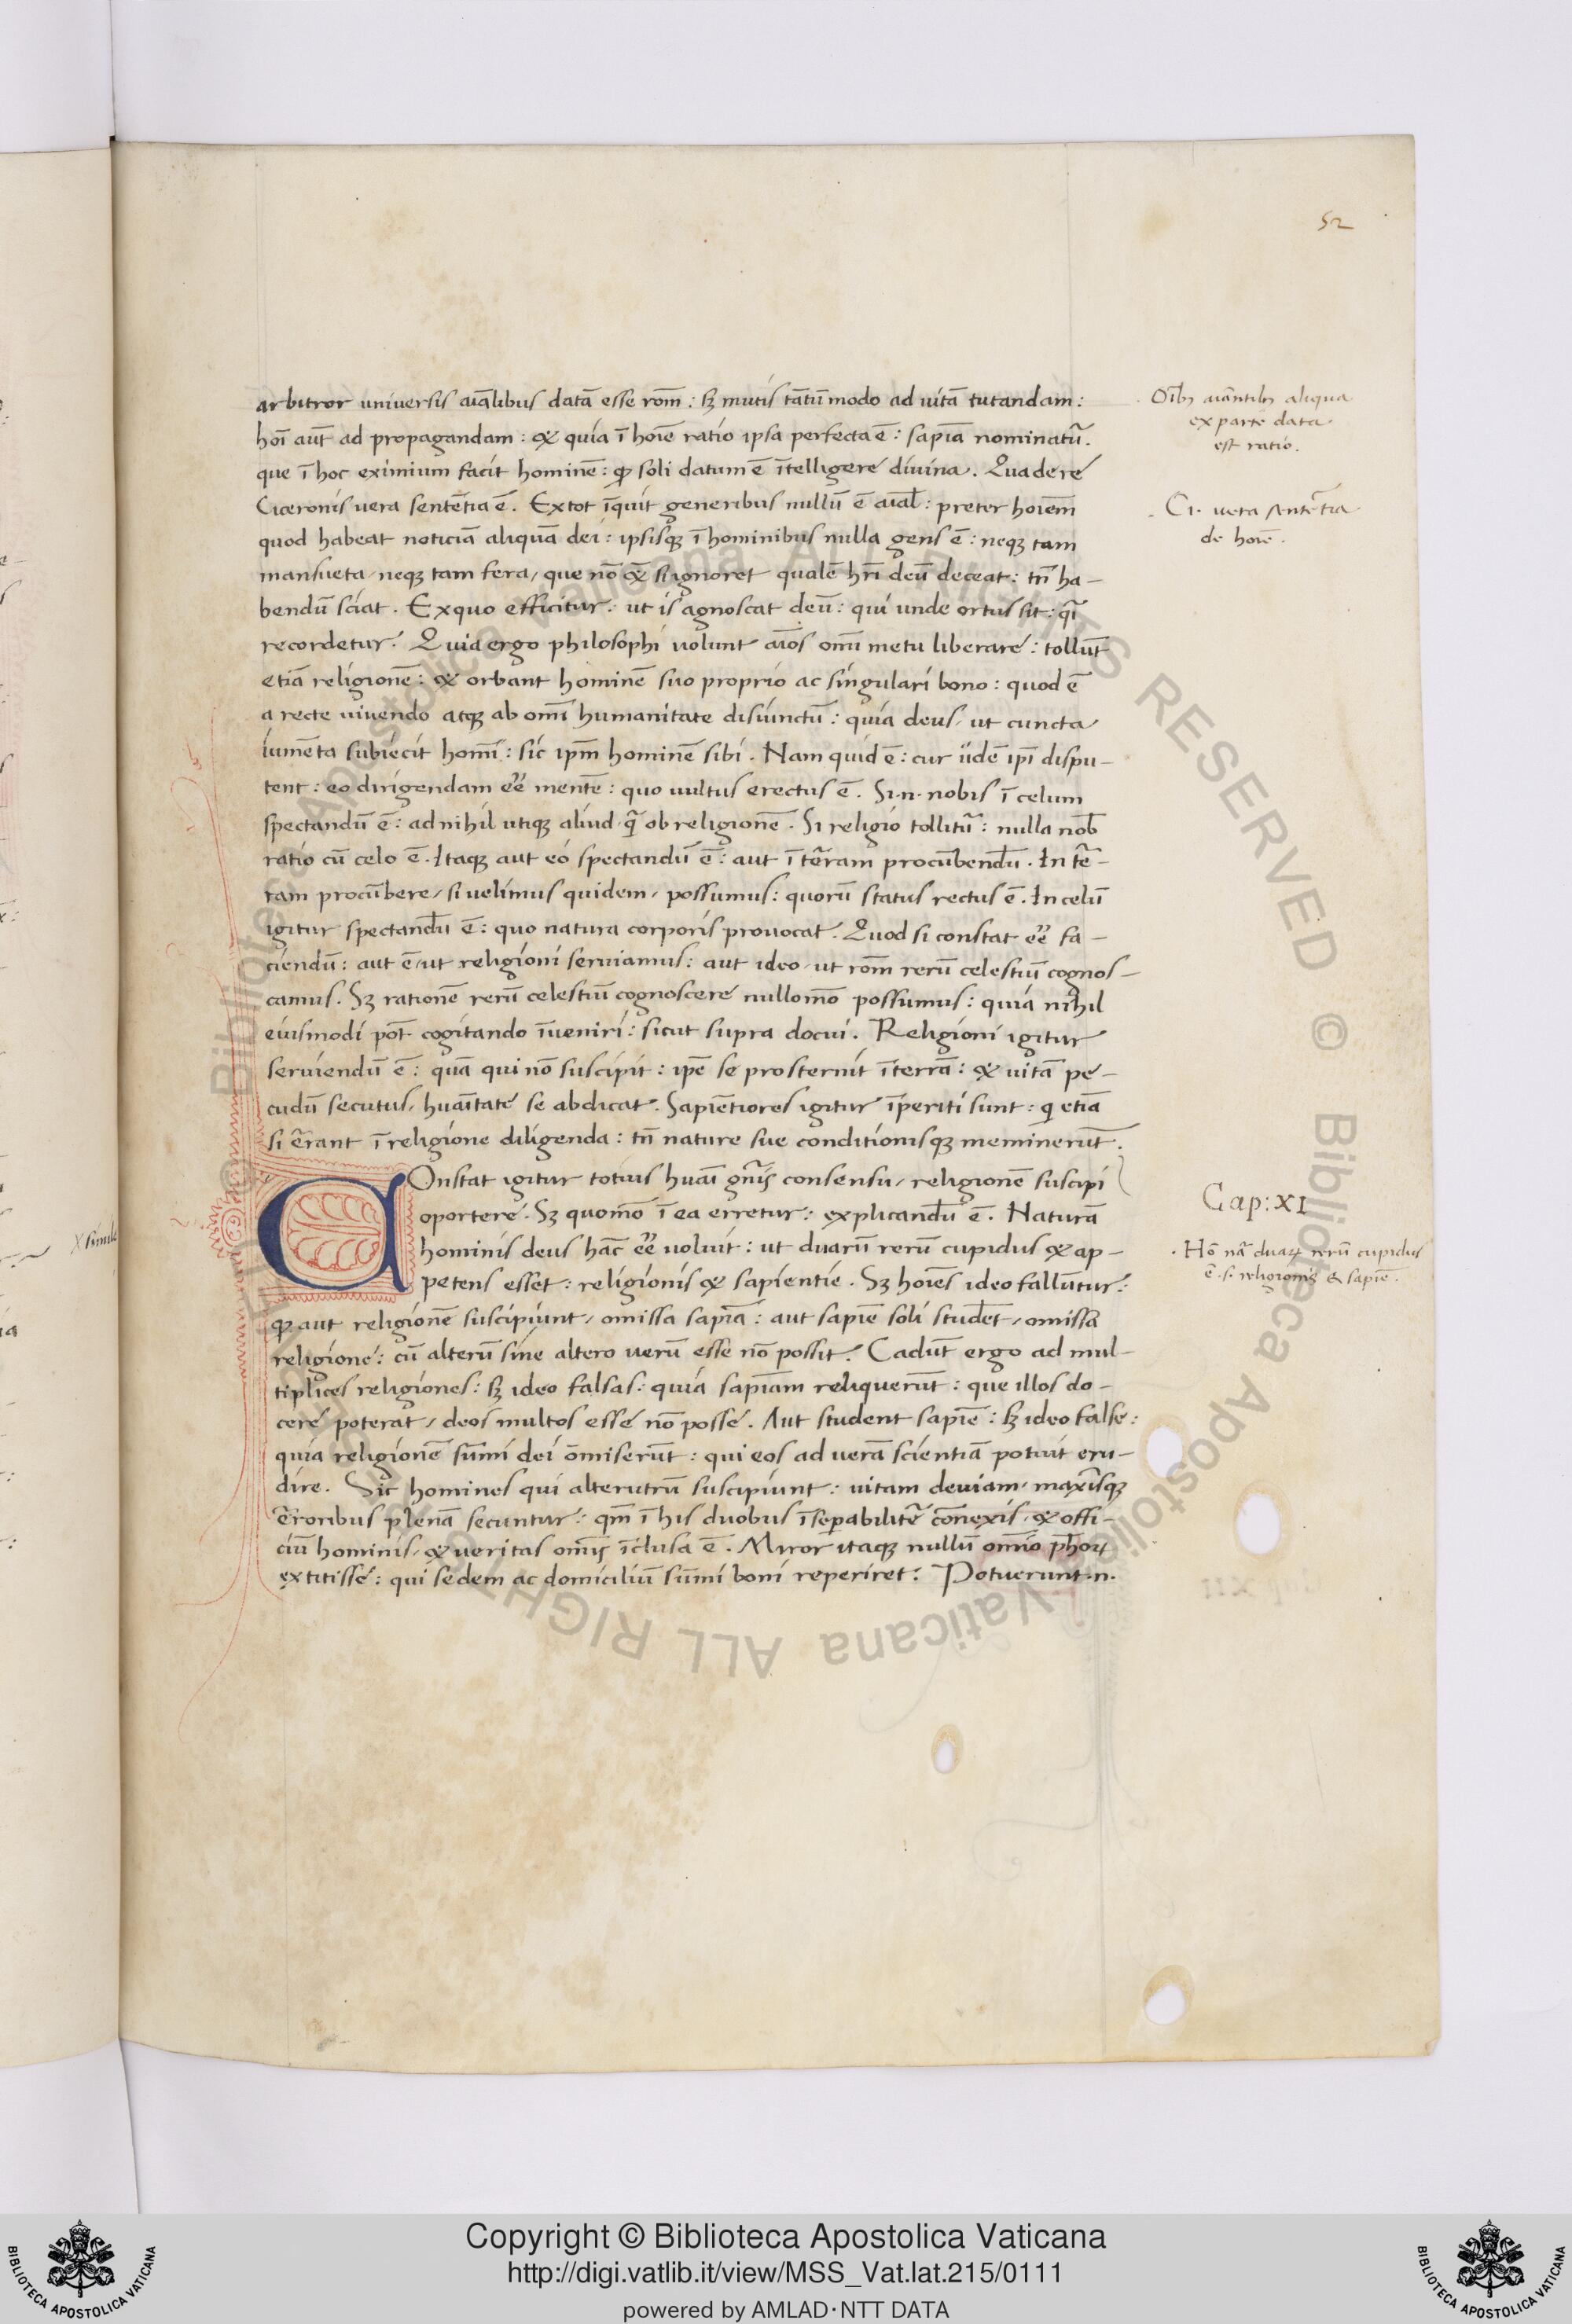 52
arbitror universis aīalibus datā esse rōm̄ : sꝫ mutis tātūmodo ad uitā tutandam :
hoī aūt ad propagandam : & quia ī hoīe ratio ipsa perfecta ē : sapīa nominatur̃ .
que ī hoc eximium facit hominē : ꝙ soli datum ē ītelligere divina . Qua de re
Ciceronis vera sentētia ē . Ex tot īquit generibus nullū ē aīal : preter hoīem
quod habeat noticiā aliquā dei : ipsisqꝫ ī hominibus nulla gens ē : neqꝫ tam
mansueta / neqꝫ tam fera / que nō si ignoret qualē hr̄i deū deceat : tn̄ ha-
bendū sciat . Ex quo efficitur : ut is agnoscat deū : qui unde ortus sit : q̄i
recordetur . Quia ergo philosophi uolunt aīos om̄i metu liberare : tollūt
etiā religionē : & orbant hominē suo proprio ac singulari bono : quod ē
a recte uiuendo atqꝫ ab om̄i humanitate disiunctū : quia deus / ut cuncta
iumēta subiecit homī : sic ip̄m hominē sibi . Nam quid ē : cur iidē ip̄i dispu-
tent : eo dirigendam eē mentē : quo uultus erectus ē . Si .n. nobis ī celum
spectandū ē : ad nihil utiqꝫ aliud q̄ ob religionē . Si religio tollitur̃ : nulla nob̄
ratio cū celo ē . Itaqꝫ aut eo spectandū ē : aut ī terram procūbendū . In ter-
ram procūbere / si uelimus quidem / possumus : quorū status rectus ē . In celū
igitur spectandū ē : quo natura corporis prouocat . Quod si constat eē fa-
ciendū : aut ē / ut religioni seruiamus : aut ideo / ut rōm̄ rerū celestiū cognos-
camus . Sꝫ rationē rerū celestiū cognoscere nullo mō possumus : quia nihil
eiusmodi pōt cogitando īueniri : sicut supra docui . Religioni igitur
seruiendū ē : quā qui nō suscipit : ip̄e se prosternit ī terrā : & uitā pe-
cudū secutus / huāitate se abdicat . Sapiētiores igitur īperiti sunt : q̄i etiā
si errant ī religione diligenda : tn̄ nature sue conditionisqꝫ meminerūt .
COnstat igitur totius huāi gn̄is consensu / religionē suscipi
oportere . Sꝫ quomō ī ea erretur : explicandū ē . Naturā
hominis deus hāc eē uoluit : ut duarū rerū cupidus & ap-
petens esset : religionis & sapientie . Sꝫ hoīes ideo fallūtur :
ꝙ aut religionē suscipiunt / omissa sapīa : aut sapīe soli studēt / omissa
religione : cū alterū sine altero uerū esse nō possit . Cadūt ergo ad mul-
tiplices religiones : sꝫ ideo falsas : quia sapīam reliquerūt : que illos do-
cere poterat / deos multos esse nō posse . Aut student sapīe : sꝫ ideo false :
quia religionē sūmi dei ōmiserūt : qui eos ad uerā scientiā potuit eru-
dire . Sic homines qui alterutrū suscipiunt : uitam deuiam / maxīsqꝫ
erroribus plenā secuntur : qm̄ ī his duobus īseparabiliter̃ cōnexis / & offi-
ciū hominis / & ueritas om̄is īclusa ē . Miror itaqꝫ nullū om̄io ph̄oꝝ
extitisse : qui sedem ac domiciliū sūmi boni reperiret . Potuerunt .n.
Oībꝫ aīantibꝫ aliqua
ex parte data
est ratio .
Ci. uera sentētia
de hoīe .
Cap : XI
Hō nā duaꝝ rerū cupidus
ē .s. religionis & sapīe .
Copyright © Biblioteca Apostolica Vaticana
http://digi.vatlib.it/view/MSS_Vat.lat.215/0111
powered by AMLAD·NTT DATA
BIBLIOTECA APOSTOLICA VATICANA
BIBLIOTECA APOSTOLICA VATICANA